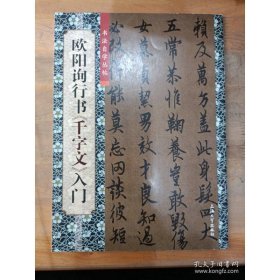 书法自学丛帖
欧阳询行书《千字文》入门
赖及万方盖此身髮四大
五常恭惟鞠养岂敢毁傷
女慕貞絜男效才良知過
必改得能莫忘罔談彼短
孔夫子旧书网